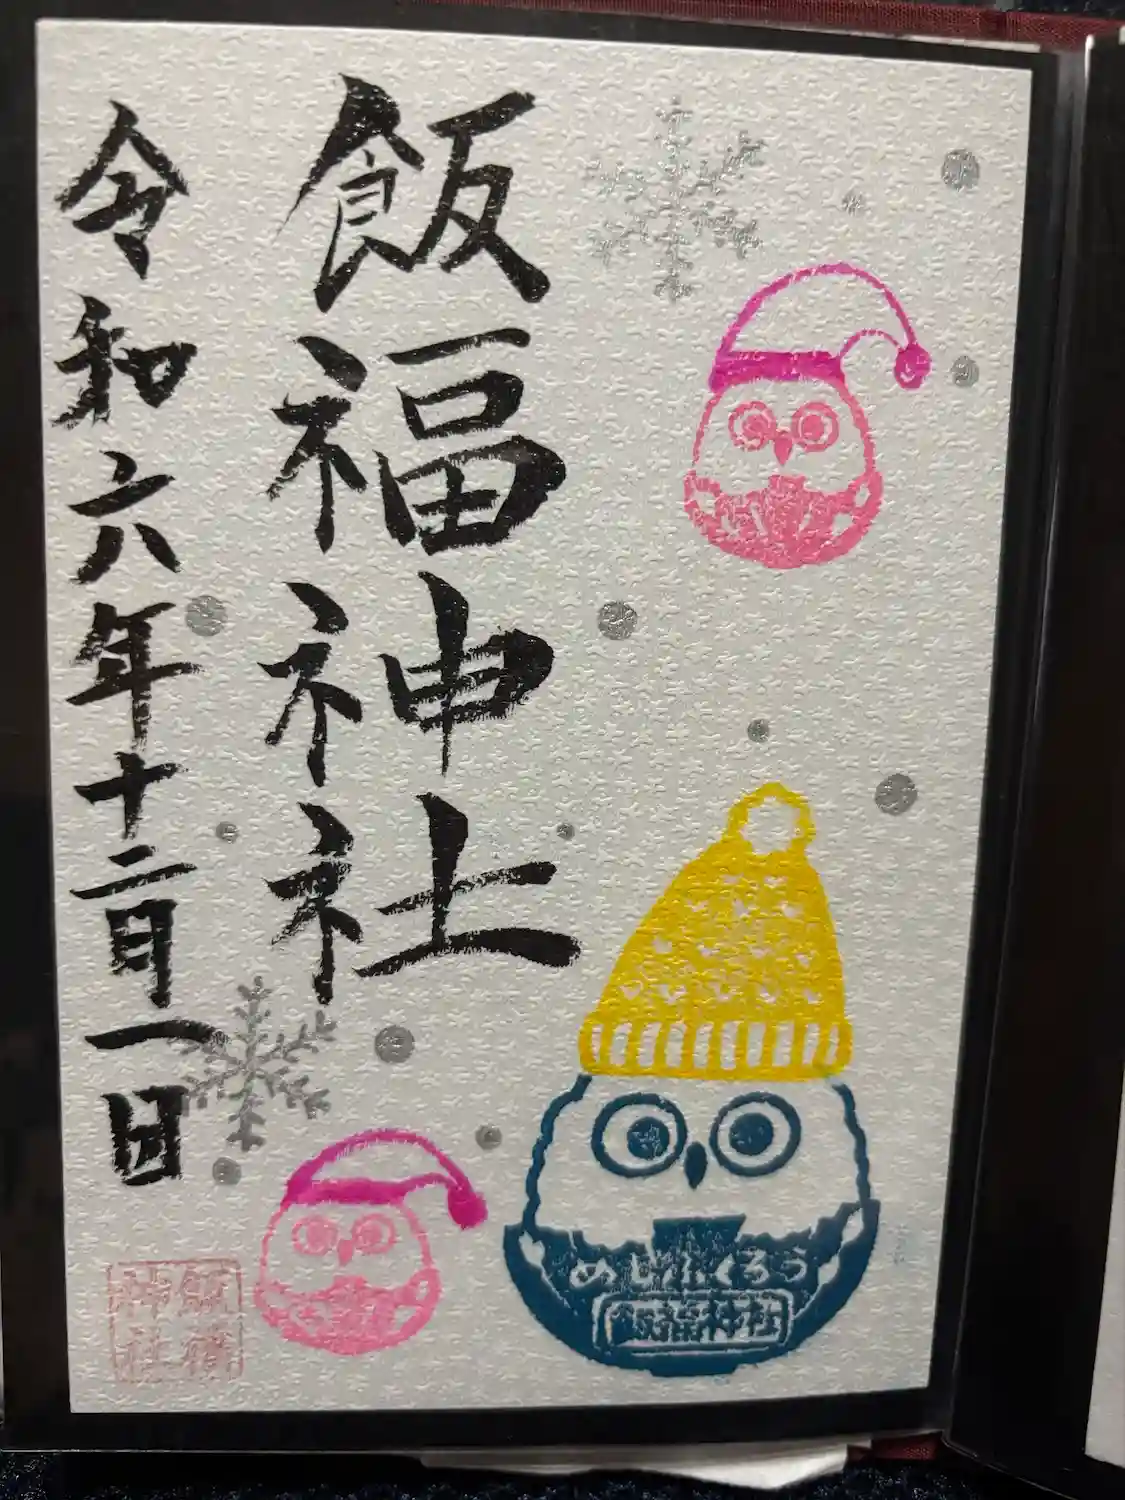 飯福神社
令和六年十二月一日
めじふくろう
飯福神社
飯福
神社